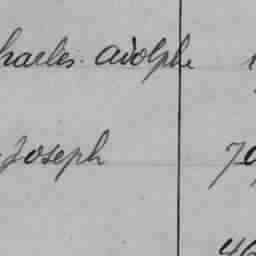 harles. Adolphe
Joseph 70
46